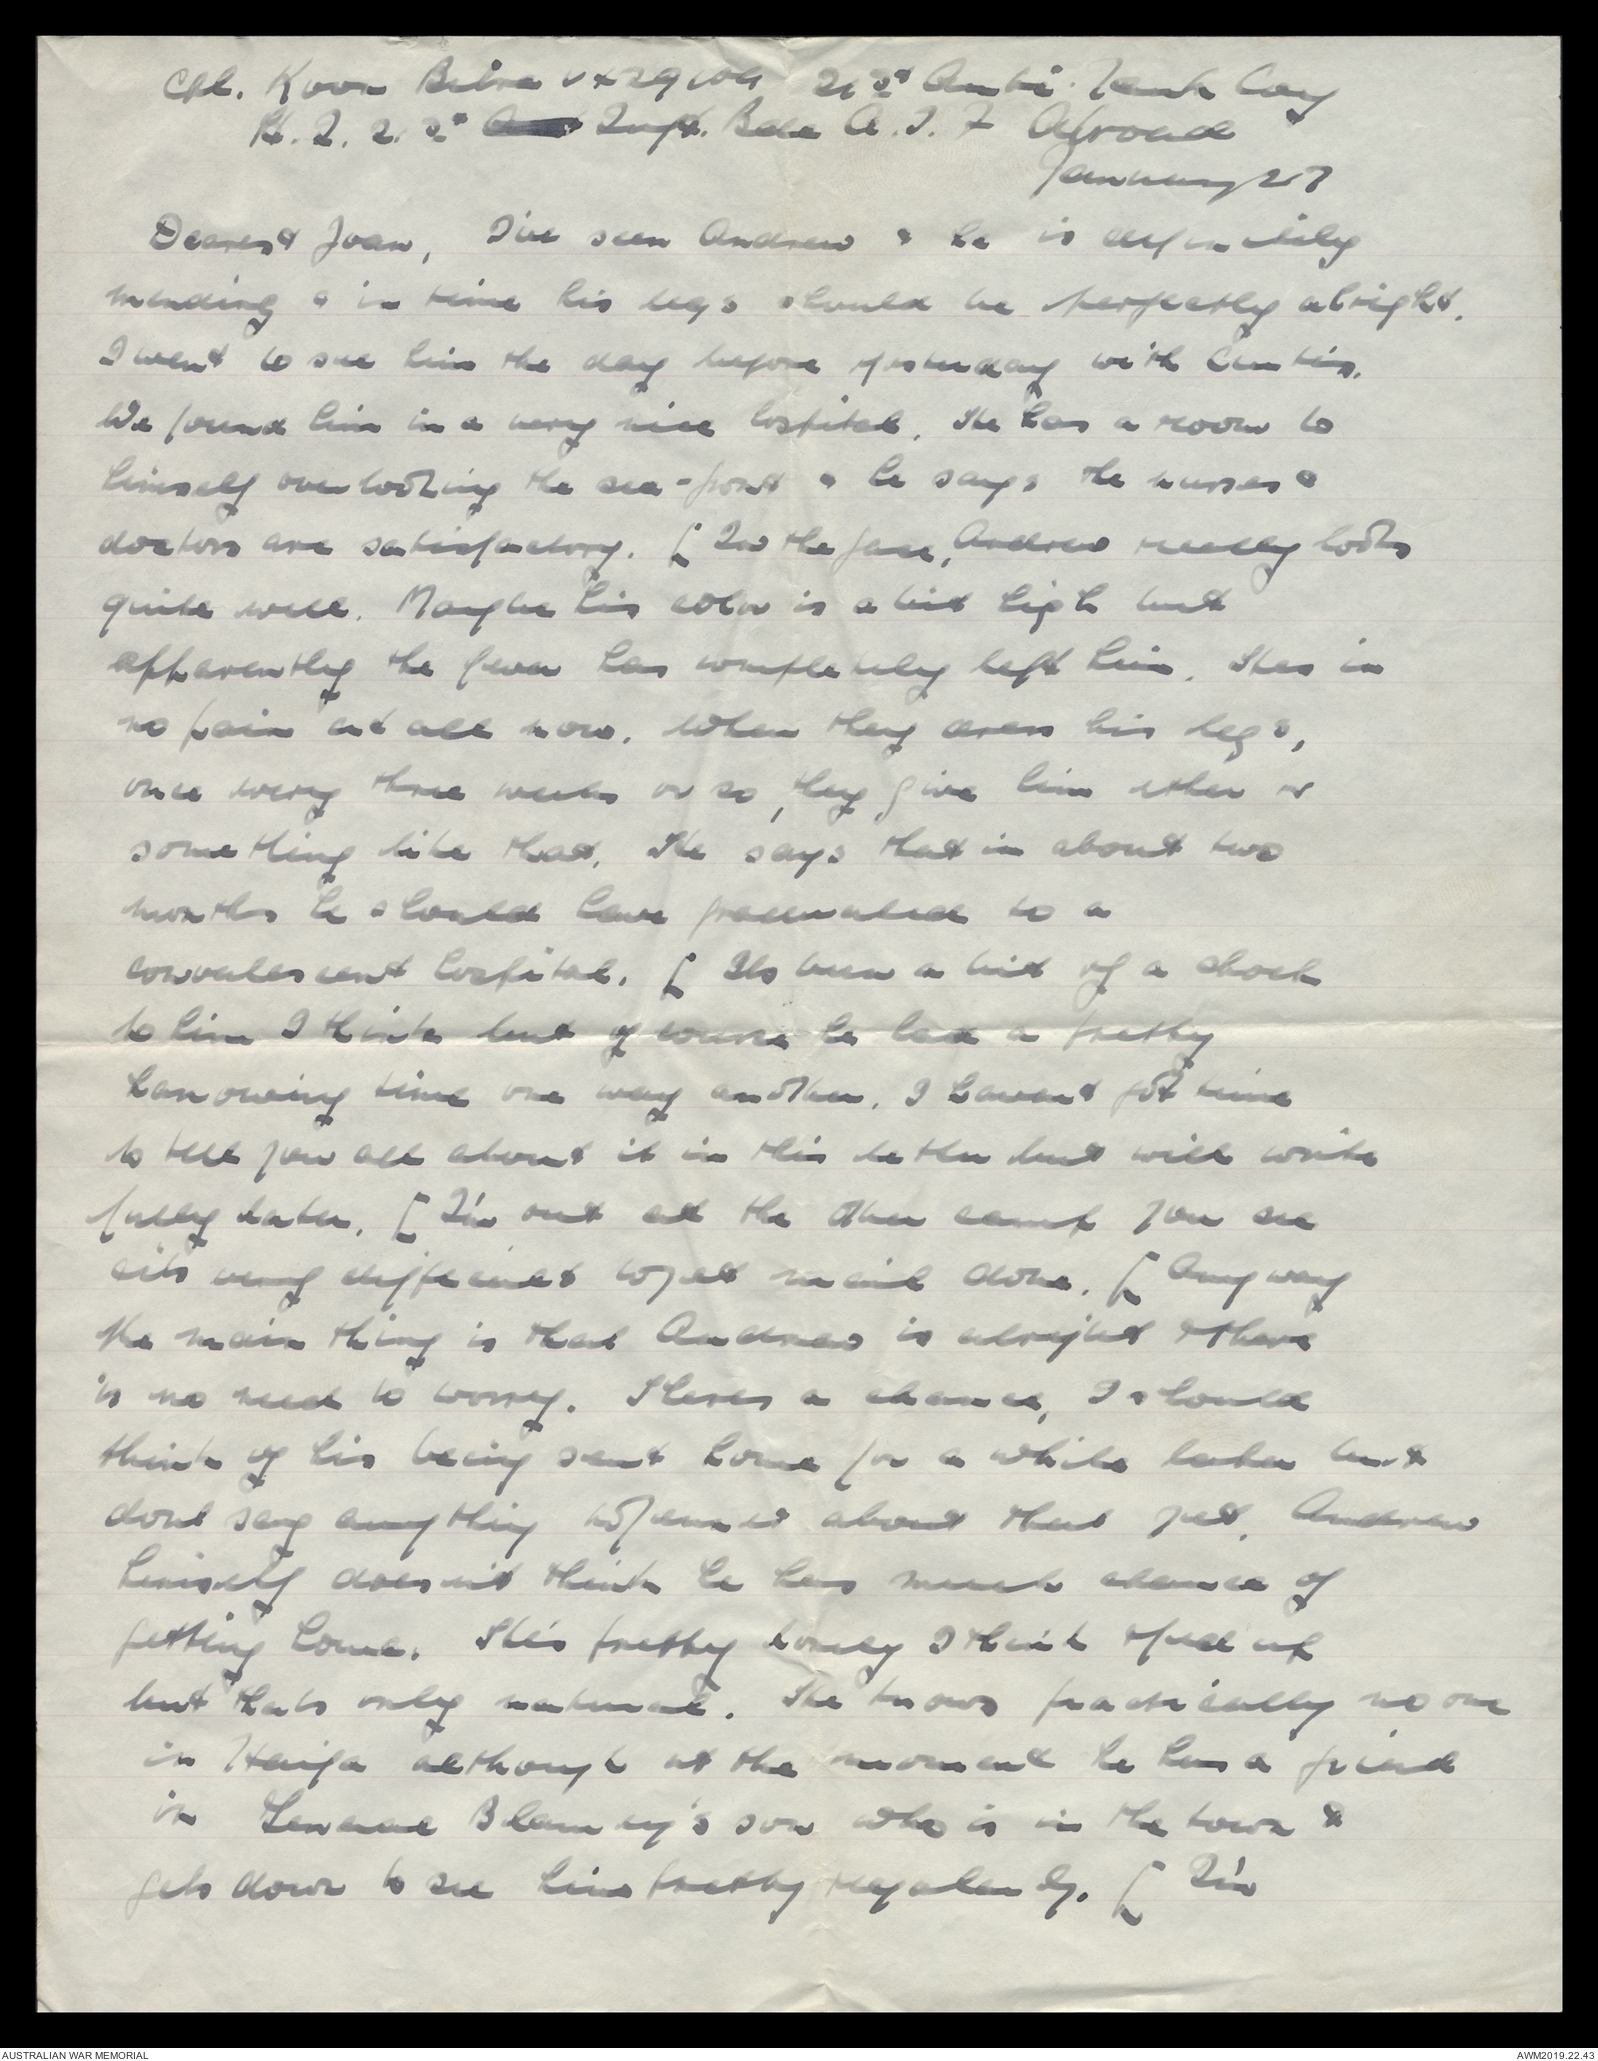 Cpl. Koor Bilra VX29104 21st Anti. Tank Coy
H.Q. 21st Inft. Bde A.I.F Abroad
January 27
Dearest Joan, I've seen Andrew & he is definitely
mending & in time his legs should be perfectly alright.
I went to see him the day before yesterday with Curtis.
We found him in a very nice hospital. He has a room to
himself overlooking the sea-front & he says the nurses &
doctors are satisfactory. [ In the face, Andrew really looks
quite well. Maybe his color is a bit high but
apparently the fever has completely left him. Hes in
no pain at all now. When they dress his legs,
once every three weeks or so, they give him ether or
something like that. He says that in about two
months he should have graduated to a
convalescent hospital. [ Its been a bit of a shock
to him I think but of course he had a pretty
harrowing time one way another. I havent got time
to tell you all about it in this letter but will write
fully later. [ I'm out at the other camp you see
its very difficult to get mail done. [ Anyway
the main thing is that Andrew is alright & there
is no need to worry. Theres a chance, I should
think of his being sent home for a while later but
dont say anything to Janet about that yet. Andrew
himself doesn't think he has much chance of
getting home. He's pretty lonely I think & fed up
but thats only natural. He knows practically no one
in Haifa although at the moment he has a friend
in General Blamey's son who is in the town &
gets down to see him pretty regularly. [ I'm
AUSTRALIAN WAR MEMORIAL
AWM2019.22.43